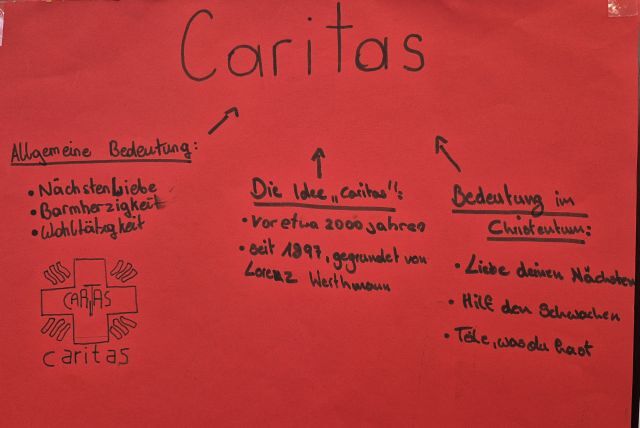 Caritas
Allgemeine Bedeutung:
• Nächstenliebe
• Barmherzigkeit
• Wohltätigkeit
CARITAS
caritas
Die Idee „Caritas“:
• vor etwa 2000 Jahren
• seit 1897, gegründet von
Lorenz Werthmann
Bedeutung im
Christentum:
• Liebe deinen Nächsten
• Hilf den Schwachen
• Teile, was du hast